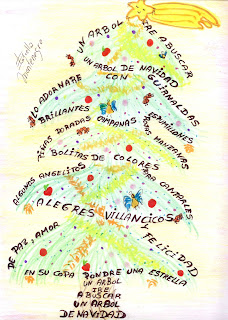 UN ARBOL IRE A BUSCAR
UN ARBOL DE NAVIDAD
CON GUIRNALDAS
LO ADORNARE
BRILLANTES CAMPANAS BERMELLONES
TIRAS DORADAS ROJAS MANZANAS
BOLITAS DE COLORES
ALGUNOS ANGELITOS PARA CANTARLES
ALEGRES VILLANCICOS
DE PAZ, AMOR Y FELICIDAD
EN SU COPA PONDRE UNA ESTRELLA
UN ARBOL
IRE
A BUSCAR
UN ARBOL
DE NAVIDAD